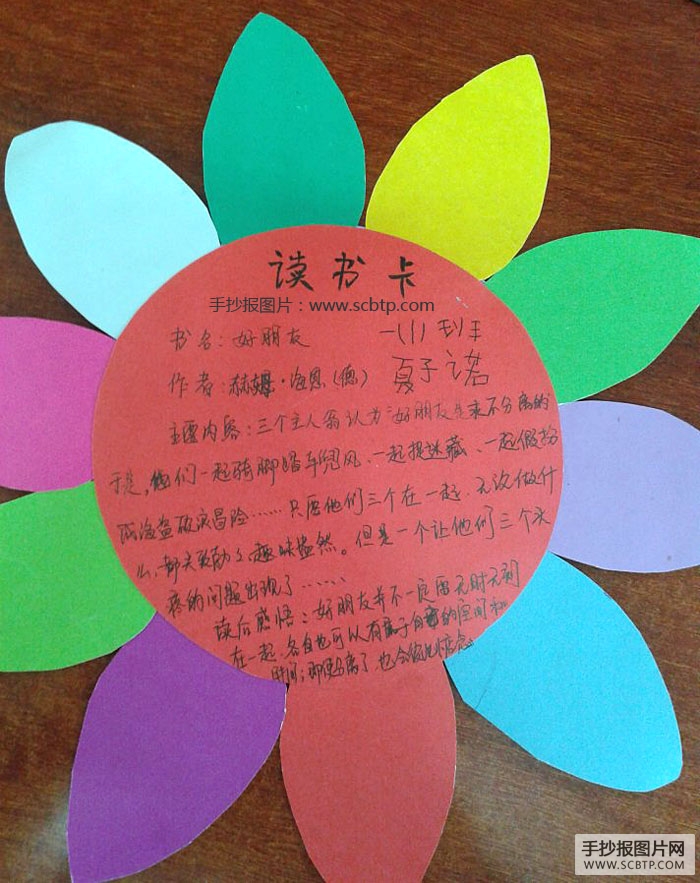 读书卡
手抄报图片：www.scbtp.com
书名：好朋友 一(1)班
作者：赫姆·海恩（德） 夏子诺
主要内容：三个主人翁认为好朋友是永不分离的
于是，他们一起骑脚踏车兜风、一起捉迷藏、一起假扮
成海盗破浪冒险……只愿他们三个在一起，无论做什
么，都夫致勃勃，趣味盎然。但是一个让他们三个头
疼的问题出现了……
读后感悟：好朋友并不一定要无时无刻
在一起，各自也可以有属于自己的空间和
时间；即使分离了，也会彼此惦念
手抄报图片网
WWW.SCBTP.COM